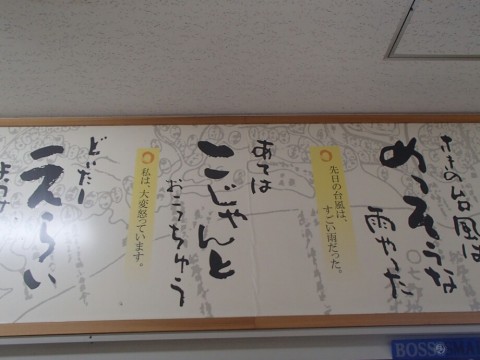 台風は
めっそうな
雨やった
先日の台風は、
すごい雨だった。
あては
こじゃんと
おこっちゅう
私は、大変怒っています。
どだー
えらい
BOSS